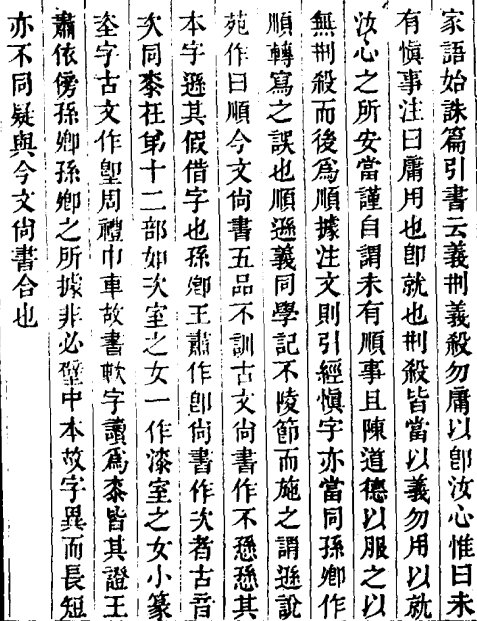 家語始誅篇引書云義刑義殺勿庸以卽汝心惟曰未
有愼事注曰庸用也卽就也刑殺皆當以義勿用以就
汝心之所安當謹自謂未有順事且陳道德以服之以
無刑殺而後爲順據注文則引經愼字亦當同孫卿作
順轉寫之誤也順遜義同學記不陵節而施之謂遜說
苑作曰順今文尙書五品不訓古文尙書作不愻愻其
本字遜其假借字也孫卿王肅作卽尙書作次者古音
次同桼在弟十二部如次室之女一作漆室之女小篆
垐字古文作堲周禮巾車故書軟字讀爲桼皆其證王
肅依傍孫卿孫卿之所據非必壁中本故字異而長短
亦不同疑與今文尙書合也